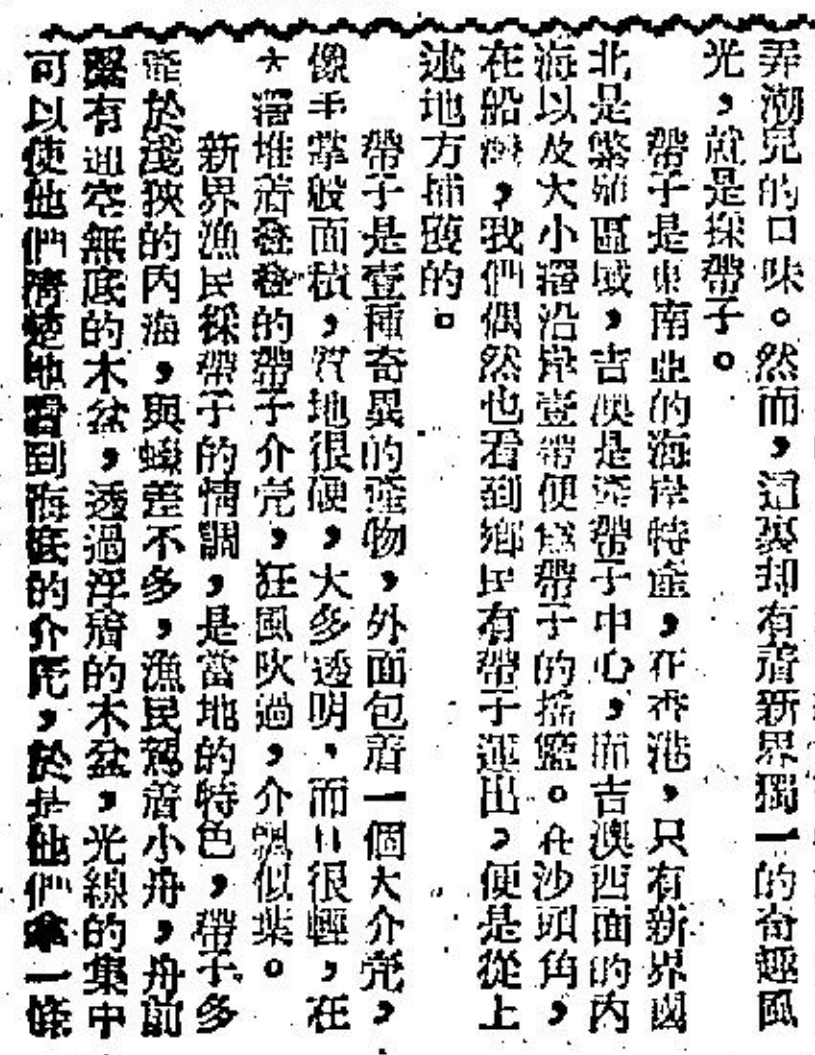 弄潮兒的口味。然而，這裏却有着新界獨一的奇趣風
光，就是採帶子。
帶子是東南亞的海岸特産，在香港，只有新界國
北是繁殖區域，吉澳是産帶子中心，而吉澳西面的内
海以及大小滘沿岸壹帶便爲帶子的搖籃。在沙頭角，
在船灣，我們偶然也看到鄉民有帶子運出，便是從上
述地方捕獲的。
帶子是壹種奇異的産物，外面包着一個大介壳，
像手掌般面積，質地很硬，大多透明，而且很輕，在
大滘堆着叠叠的帶子介壳，狂風吹過，介飄似葉。
新界漁民採帶子的情調，是當地的特色，帶子多
産於淺狹的内海，與蠔差不多，漁民駕着小舟，舟前
繫有通空無底的木盆，透過浮着的木盆，光線的集中
可以使他們清楚地看到海底的介壳，於是他們拿一條